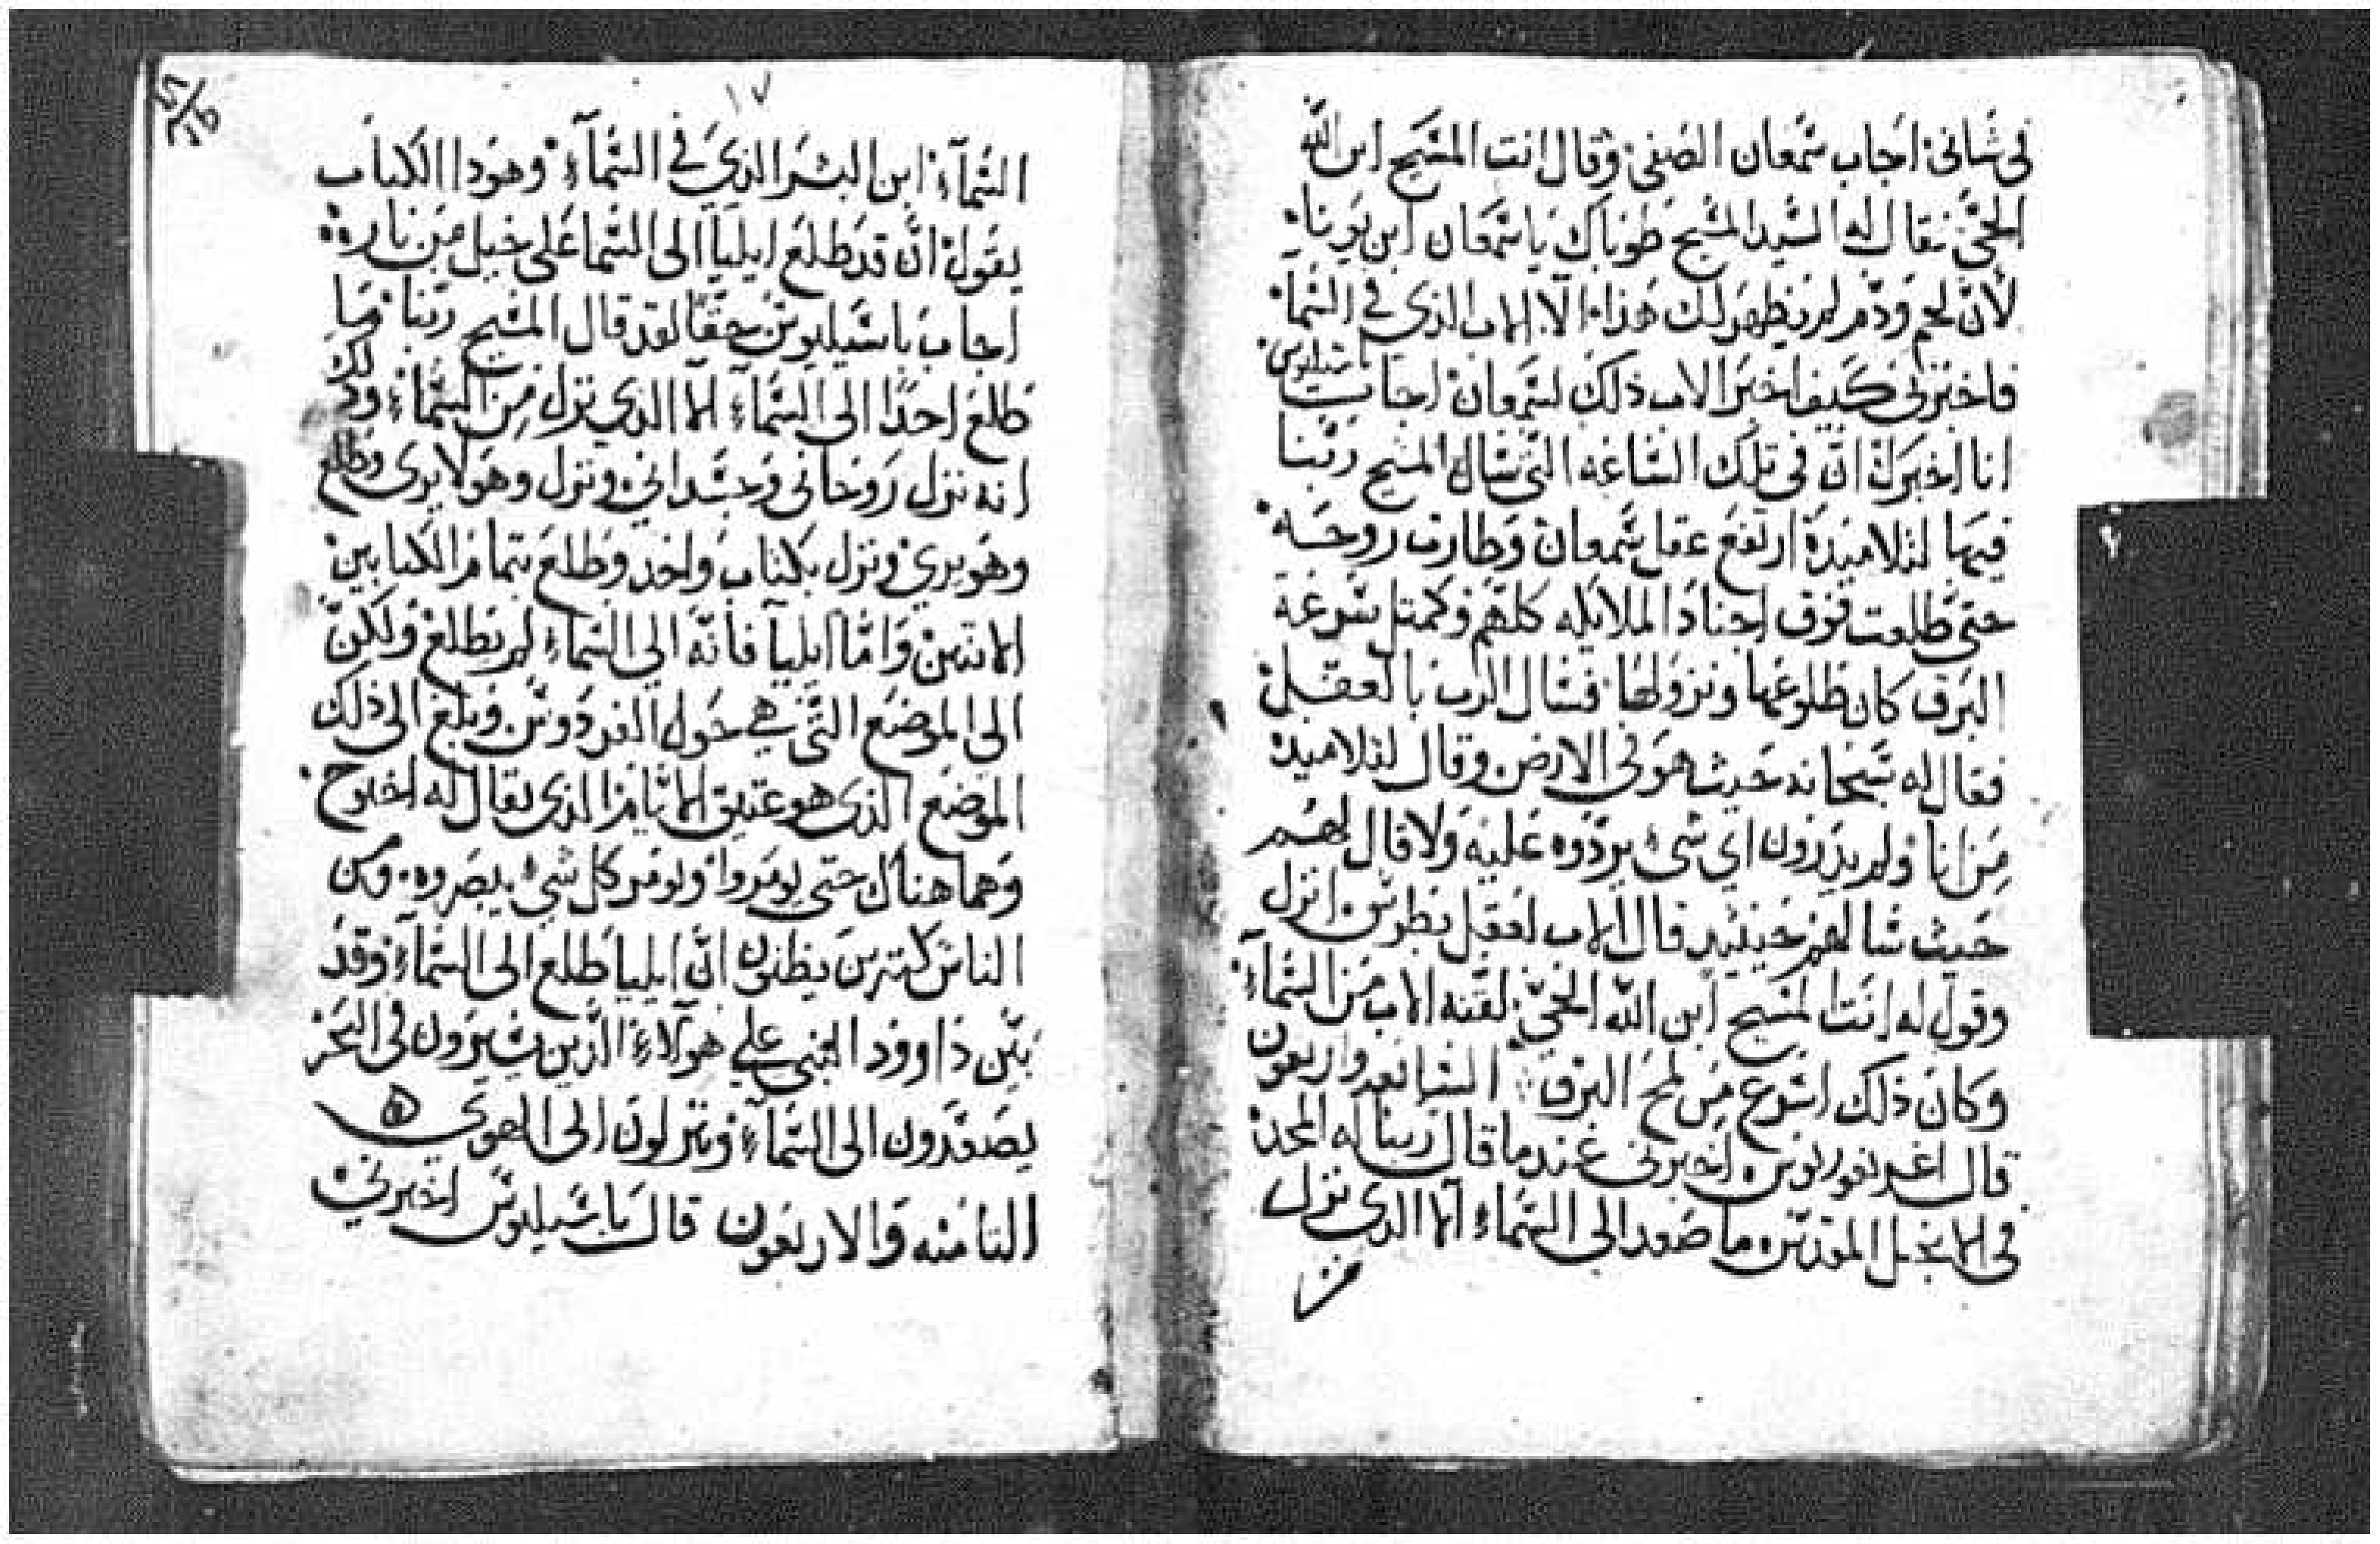 فى شانى اجاب شمعان الصفى وقال انت المسيح ابن الله
الحي فقال له السيد المسيح طوباك ياشمعان ابن يونا
لأن لحم ودم لم يظهر لك هذا الا الاب الذي في السما
فاخبرنى كيف اخبر الاب ذلك لشمعان اجاب باسيليوس
انا اخبرك ان فى تلك الساعه التى سال المسيح ربنا
فيها لتلاميذه ارتفع عقل شمعان وطارت روحه
حتى طلعت فوق اجناد الملايكه كلهم وكمتل سرعة
البرق كان طلوعها ونزولها فسال الرب بالعقل
فقال له سبحانه حيث هو فى الارض وقال لتلاميده
من انا ولم يدرون اي شى يردوه عليه ولا قال لهم
حيث سالهم حينيد قال الاب لعقل بطرس انزل
وقول له انت المسيح ابن الله الحي لقنه الاب من السماء
وكان ذلك اسرع من لمح البرق السابعه واربعون
قال اغريغوريوس اخبرنى عندما قال ربنا له المجد
فى الانجيل المقدس ما صعد الى السماء الا الدى نزل
من
١٧
السمآء ابن البشر الذي في السمآء وهودا الكتاب
يقول ان قد طلع ايليا الى السما على خيل من نار
اجاب باسيليوس حقا لقد قال المسيح ربنا ما
طلع احدا الى السمآء الا الدي نزل من السماء وذلك
انه نزل روحانى وجسدانى ونزل وهو لا يرى وطلع
وهو يرى ونزل بكتاب واحد وطلع بتمام الكتابين
الاتنين واما ايليا فانه الي السماء لم يطلع ولكن
الى الموضع التى هي حول الفردوس وبلغ الى ذلك
الموضع الذى هو عتيق الايام الذى يقال له اخنوخ
وهما هناك حتى يومروا ويومر كل شي يبصروه وكن
الناس كتيرين يظنون ان ايليا طلع الى السمآء وقد
بين داوود النبى علي هولاء الذين يسيرون فى البحر
يصعدون الى السمآء وينزلون الى الهوي
التامنه والاربعون قال باسيليوس اخبرني